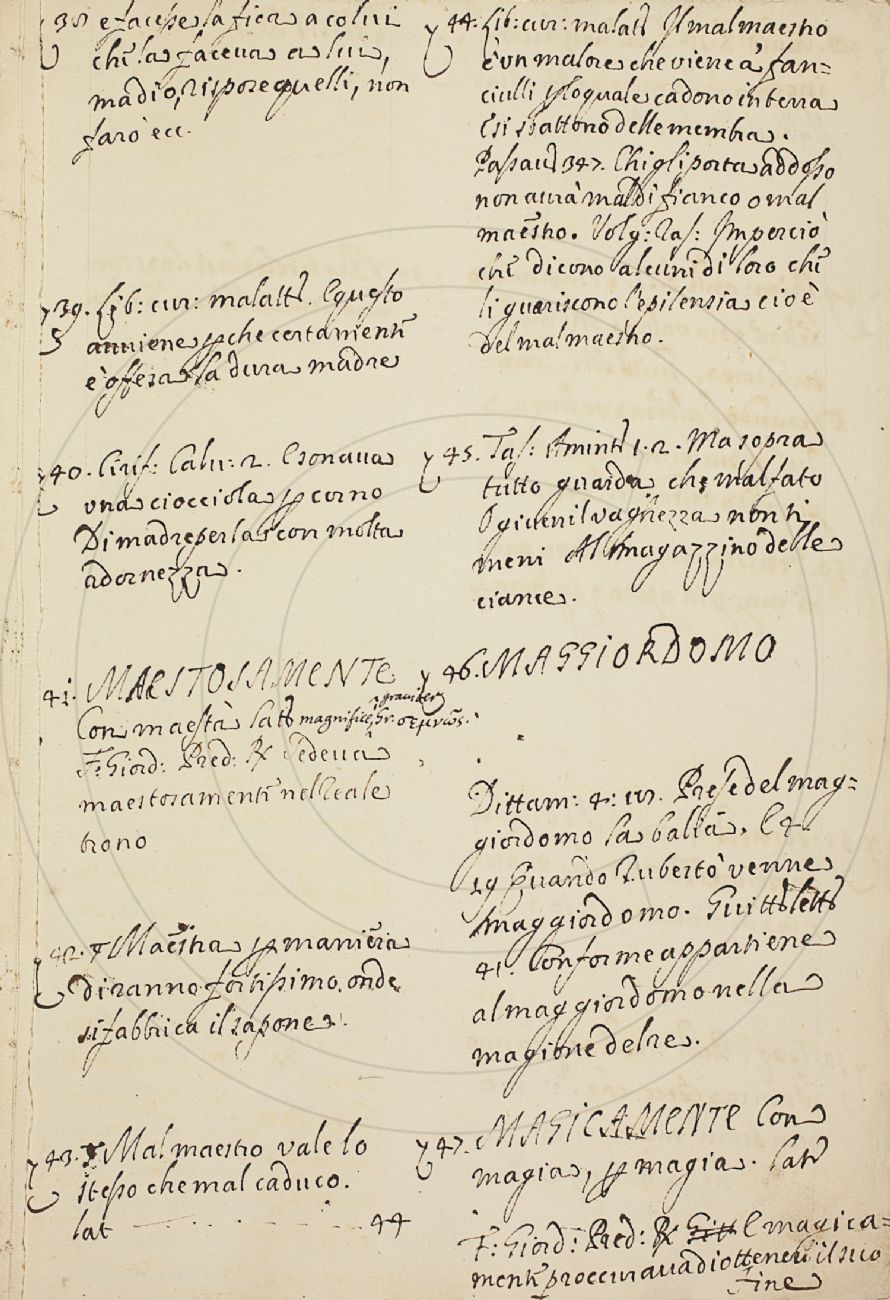 38 e facesse la fiera a colui
che la faceua a lui,
madio, rispose quelli, non
farò ecc.
39. Lib: cur: malatt. E questo
auuiene ꝑche certamente
è offesa la dura madre
40. Cirif: Calu: 2. E sonaua
una chiocciola ꝑ corno
Di madreperla con molta
adornezza.
41. MAESTOSAMENTE
Con maestà Lat. magnifice, graviter Gr. σεμνῶς.
F: Giord: Pred: R Sedeua
maestosamente nel reale
trono
42. Maestra ꝑ maniera
di ranno fortissimo, onde
si fabbrica il sapone.
43. Mal maestro vale lo
stesso che mal caduco.
lat 44
44. Lib: cur: malatt Il mal maestro
è un malore che viene a' fan=
ciulli ꝑ lo quale cadono in terra
E si sbattono delle membra.
Passau 347. Chi gli porta addosso
non aurà mal di fianco o mal
maestro. Volg: Ras: Imperciò
che dicono alcuni di loro che
li guariscono l'epilensia cioè
del mal maestro.
45. Tass: Amint 1. 2. Ma sopra
tutto guarda che mal fato
O giouenil vaghezza non ti
meni Al magazzino delle
ciance.
46. MAGGIORDOMO
Dittam: 4: cur. Prese del mag=
giordomo la balia. E 4.
19 Quando Ruberto venne
maggiordomo. Guitt lett
41. Conforme appartiene
al maggiordomo nella
magione del re.
47. MAGICAMENTE Con
magia, ꝑ magia. Lat
F: Giord: Pred: R E magica=
mente proccuraua di ottenere il suo
fine